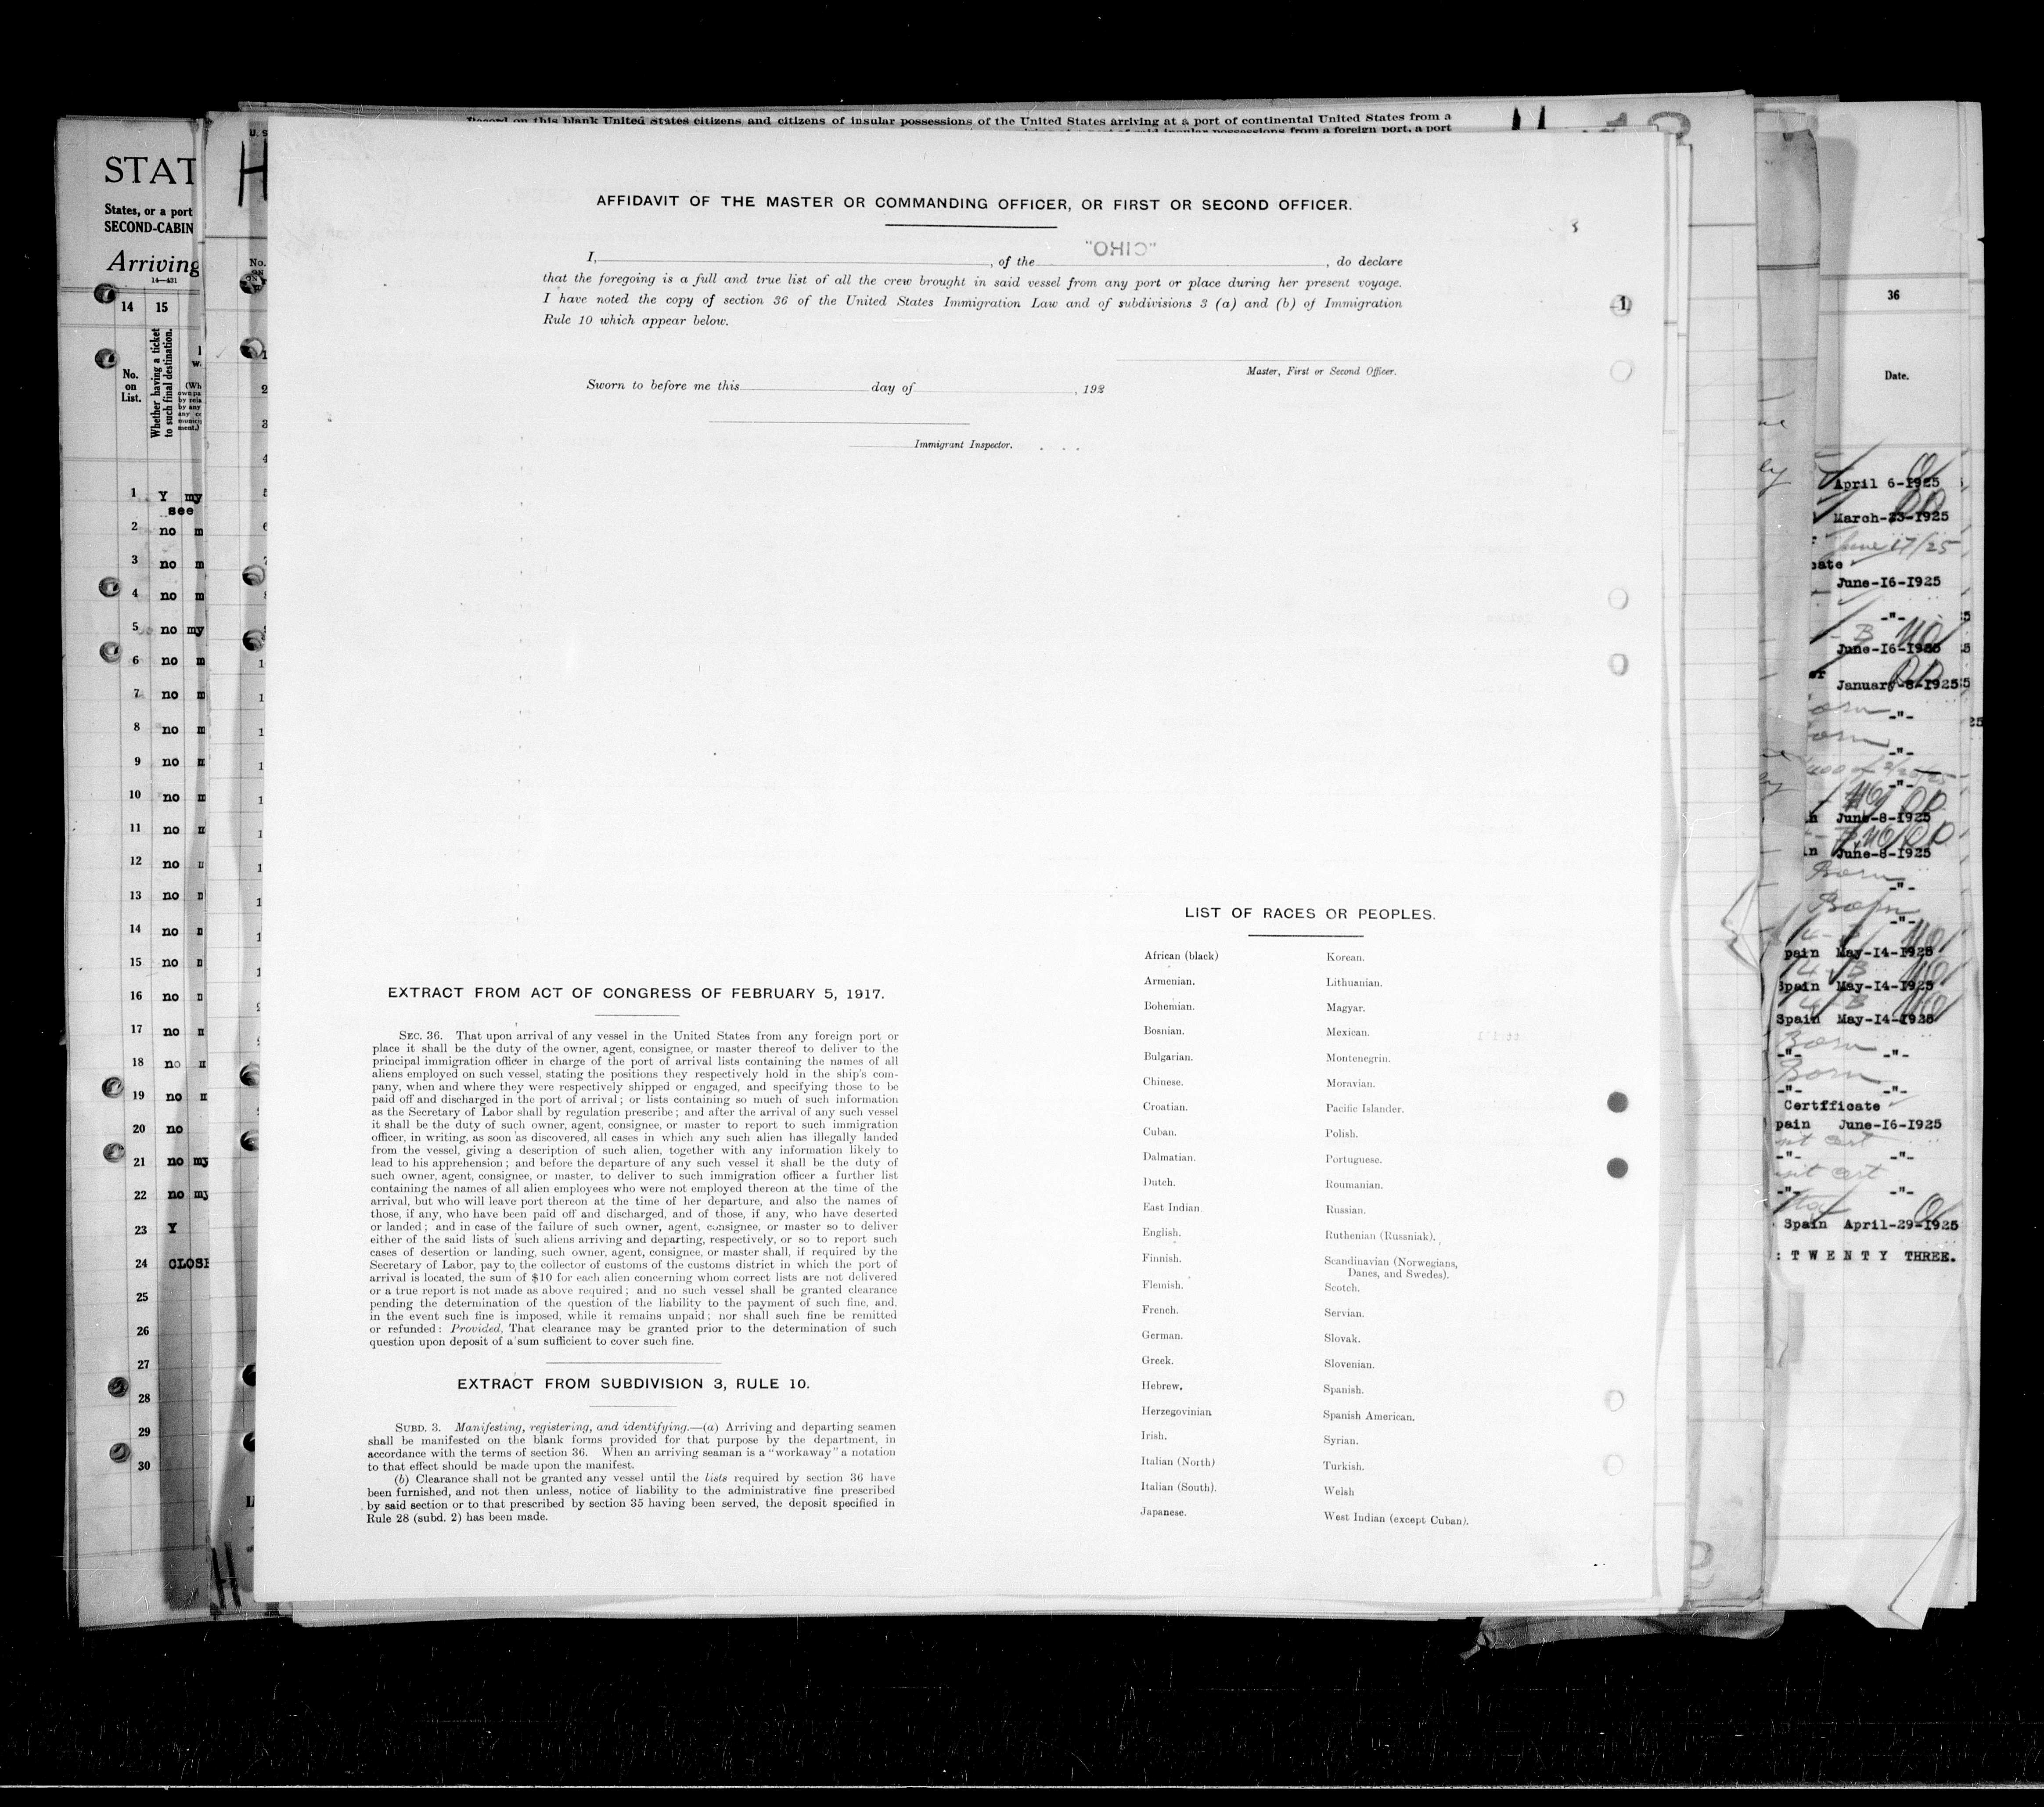 Record on this blank United States citizens and citizens of insular possessions of the United States arriving at a port of continental United States from a
STAT
States, or a port
SECOND-CABIN
Arriving
14—431
14 15
No.
on
List.
Whether having a ticket
to such final destination.
1 Y my
see
2 no m
3 no m
4 no m
5 no my
6 no m
7 no m
8 no m
9 no
10 no m
11 no
12 no
13 no
14 no
15 no
16 no
17 no
18 no
19 no
20 no
21 no my
22 no my
23 Y
24 CLOSE
25
26
27
28
29
30
AFFIDAVIT OF THE MASTER OR COMMANDING OFFICER, OR FIRST OR SECOND OFFICER.
I, , of the , do declare
that the foregoing is a full and true list of all the crew brought in said vessel from any port or place during her present voyage.
I have noted the copy of section 36 of the United States Immigration Law and of subdivisions 3 (a) and (b) of Immigration
Rule 10 which appear below.
Master, First or Second Officer.
Sworn to before me this day of , 192
Immigrant Inspector.
EXTRACT FROM ACT OF CONGRESS OF FEBRUARY 5, 1917.
SEC. 36. That upon arrival of any vessel in the United States from any foreign port or
place it shall be the duty of the owner, agent, consignee, or master thereof to deliver to the
principal immigration officer in charge of the port of arrival lists containing the names of all
aliens employed on such vessel, stating the positions they respectively hold in the ship's com-
pany, when and where they were respectively shipped or engaged, and specifying those to be
paid off and discharged in the port of arrival; or lists containing so much of such information
as the Secretary of Labor shall by regulation prescribe; and after the arrival of any such vessel
it shall be the duty of such owner, agent, consignee, or master to report to such immigration
officer, in writing, as soon as discovered, all cases in which any such alien has illegally landed
from the vessel, giving a description of such alien, together with any information likely to
lead to his apprehension; and before the departure of any such vessel it shall be the duty of
such owner, agent, consignee, or master, to deliver to such immigration officer a further list
containing the names of all alien employees who were not employed thereon at the time of the
arrival, but who will leave port thereon at the time of her departure, and also the names of
those, if any, who have been paid off and discharged, and of those, if any, who have deserted
or landed; and in case of the failure of such owner, agent, consignee, or master so to deliver
either of the said lists of such aliens arriving and departing, respectively, or so to report such
cases of desertion or landing, such owner, agent, consignee, or master shall, if required by the
Secretary of Labor, pay to the collector of customs of the customs district in which the port of
arrival is located, the sum of $10 for each alien concerning whom correct lists are not delivered
or a true report is not made as above required; and no such vessel shall be granted clearance
pending the determination of the question of the liability to the payment of such fine, and,
in the event such fine is imposed, while it remains unpaid; nor shall such fine be remitted
or refunded: Provided, That clearance may be granted prior to the determination of such
question upon deposit of a sum sufficient to cover such fine.
EXTRACT FROM SUBDIVISION 3, RULE 10.
SUBD. 3. Manifesting, registering, and identifying.—(a) Arriving and departing seamen
shall be manifested on the blank forms provided for that purpose by the department, in
accordance with the terms of section 36. When an arriving seaman is a "workaway" a notation
to that effect should be made upon the manifest.
(b) Clearance shall not be granted any vessel until the lists required by section 36 have
been furnished, and not then unless, notice of liability to the administrative fine prescribed
by said section or to that prescribed by section 35 having been served, the deposit specified in
Rule 28 (subd. 2) has been made.
LIST OF RACES OR PEOPLES.
African (black)
Armenian.
Bohemian.
Bosnian.
Bulgarian.
Chinese.
Croatian.
Cuban.
Dalmatian.
Dutch.
East Indian
English.
Finnish.
Flemish.
French.
German.
Greek.
Hebrew.
Herzegovinian
Irish.
Italian (North)
Italian (South).
Japanese.
Korean.
Lithuanian.
Magyar.
Mexican.
Montenegrin.
Moravian.
Pacific Islander.
Polish.
Portuguese.
Roumanian.
Russian.
Ruthenian (Russniak).
Scandinavian (Norwegians,
Danes, and Swedes).
Scotch.
Servian.
Slovak.
Slovenian.
Spanish.
Spanish American.
Syrian.
Turkish.
Welsh
West Indian (except Cuban).
36
Date.
April 6-1925
March-23-1925
June 17/25
June-16-1925
-"-
June-16-1925
January-8-1925
-"-
-"-
-"-
June-8-1925
June-8-1925
Born
-"-
Born
-"-
pain May-14-1925
Spain May-14-1925
Spain May-14-1925
Born
-"- -"-
Born
-"- -"-
Certificate
pain June-16-1925
-"- -"-
-"- -"-
Spain April-29-1925
: T W E N T Y THREE.